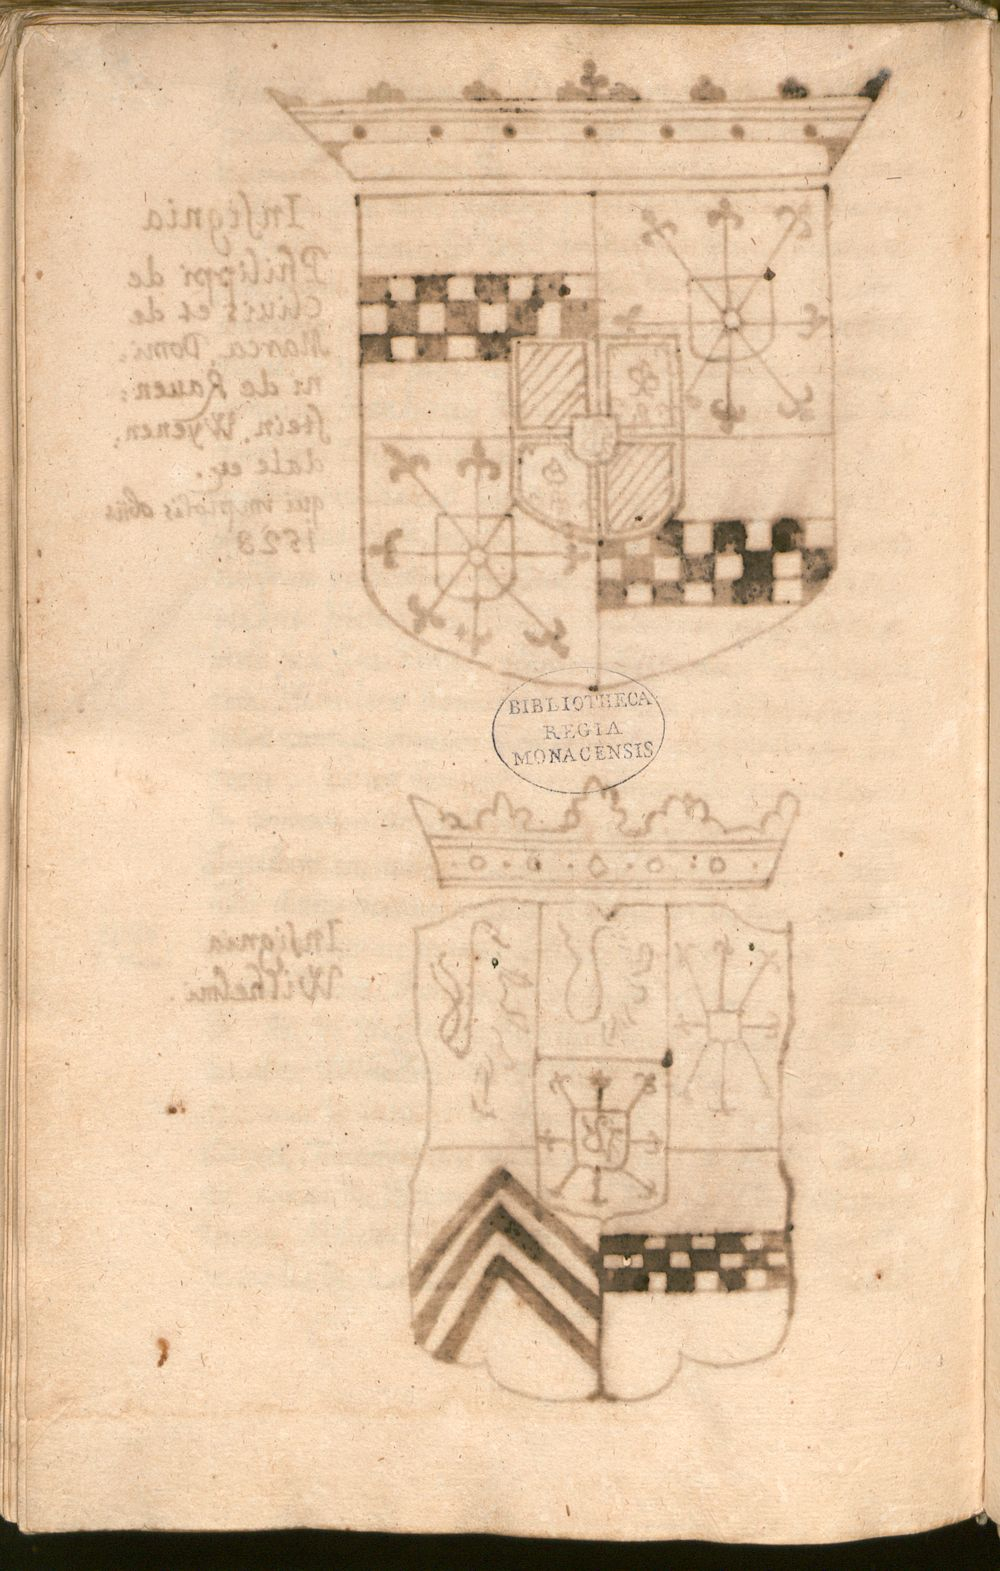 Insignia
Philippi de
Cliuis et de
Marca, Domi,
ni de Rauen:
stein, Wyenen,
dale
qui
1528
BIBLIOTHECA
REGIA
MONACENSIS
Insignia
Wilhelmi.